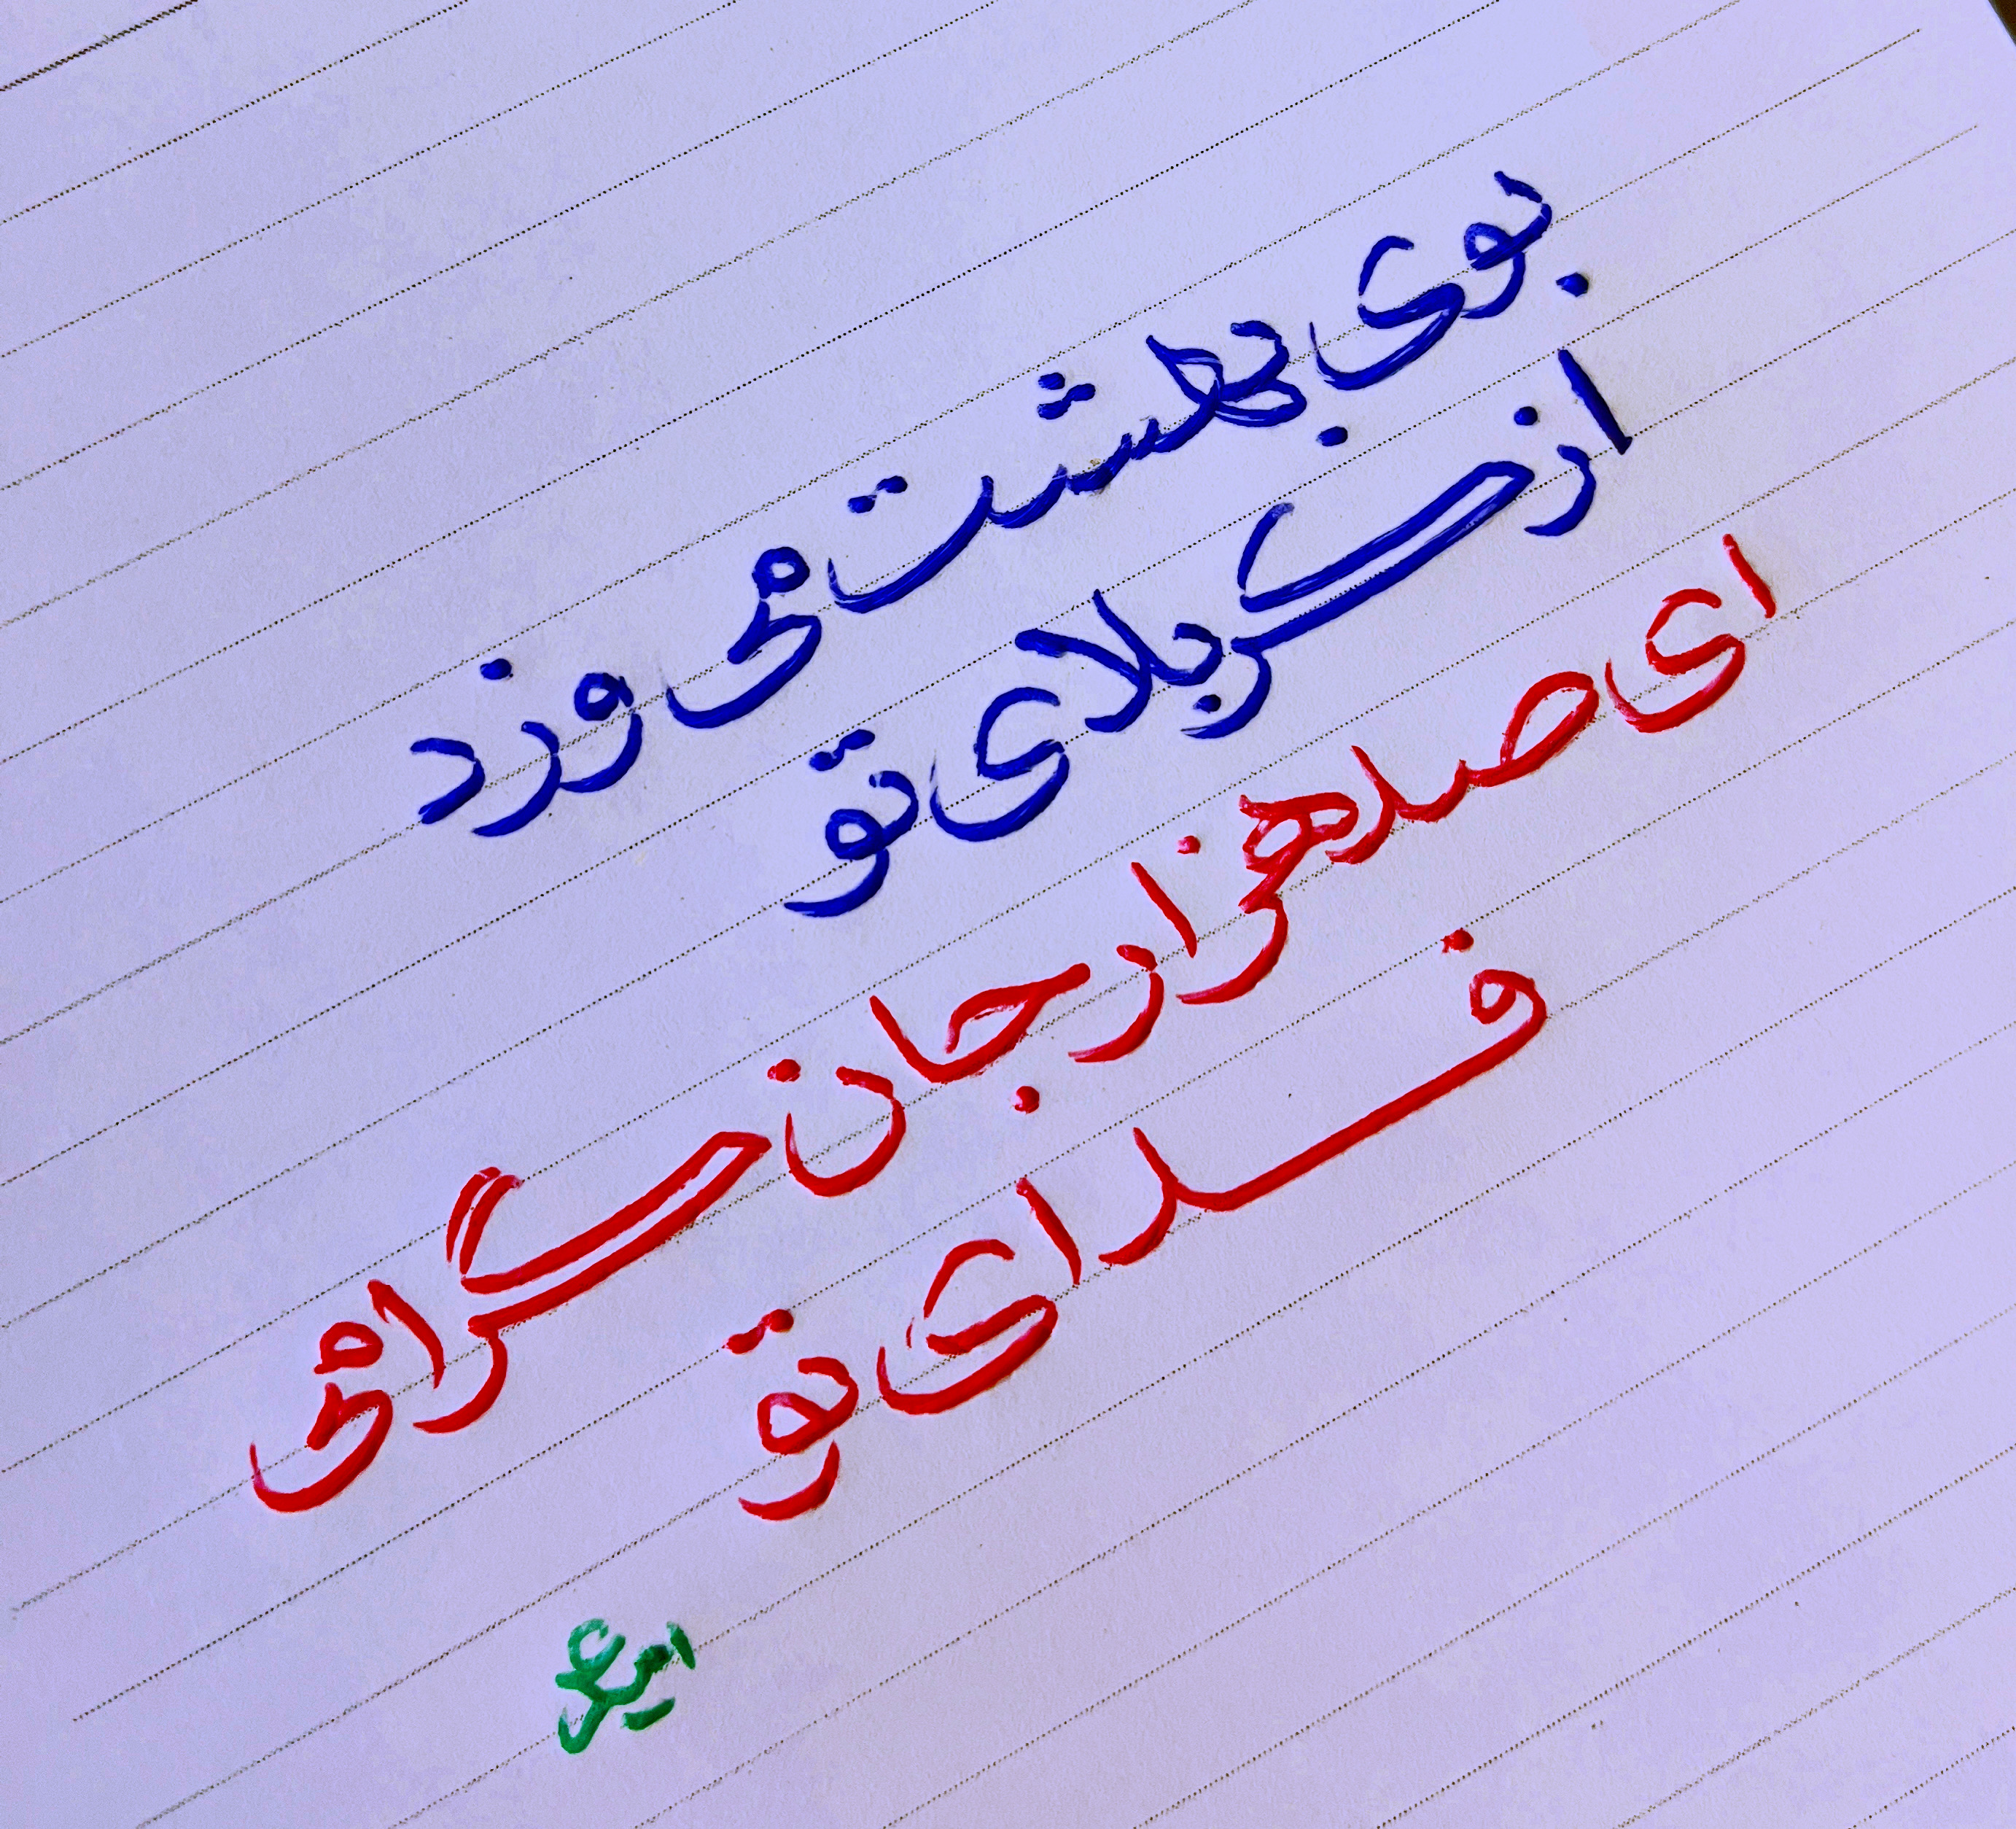 بوی بهشت می وزد
از کربلای تو
ای صد هزار جان گرامی
فدای تو